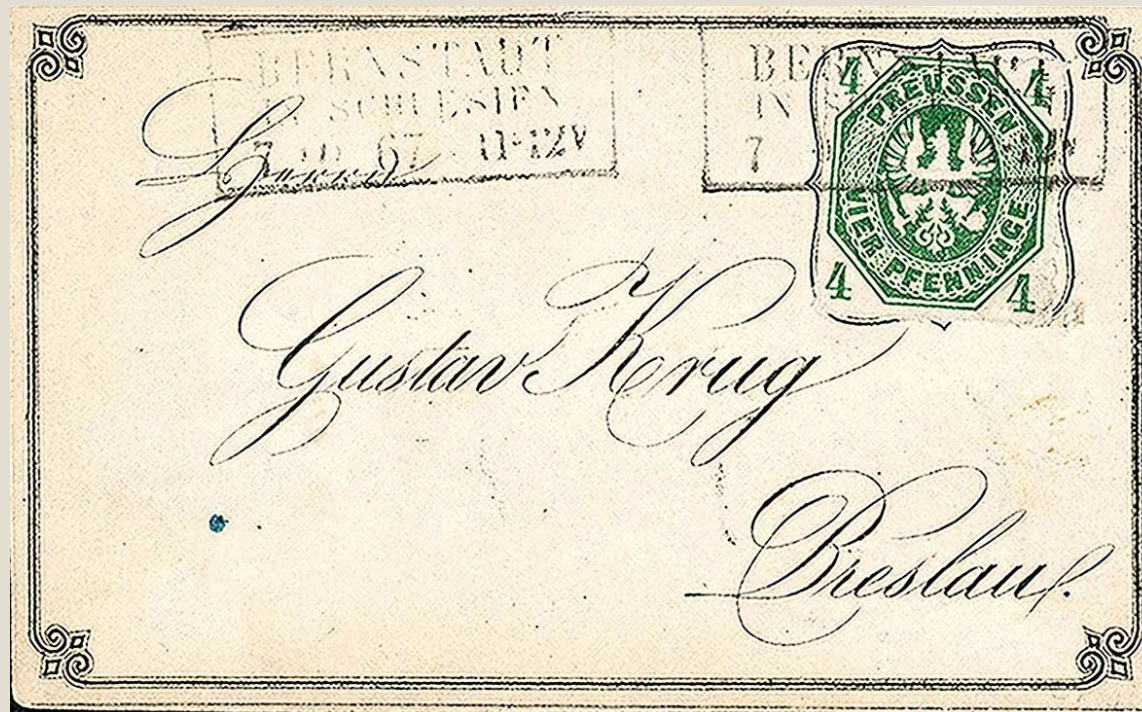 BERNSTADT
IN SCHLESIEN
7 10 67 11-12V
BERNSTADT
IN
7
4 4
PREUSSEN
VIER PFENNINGE
4 4
Herrn
Gustav Krug
Breslau.